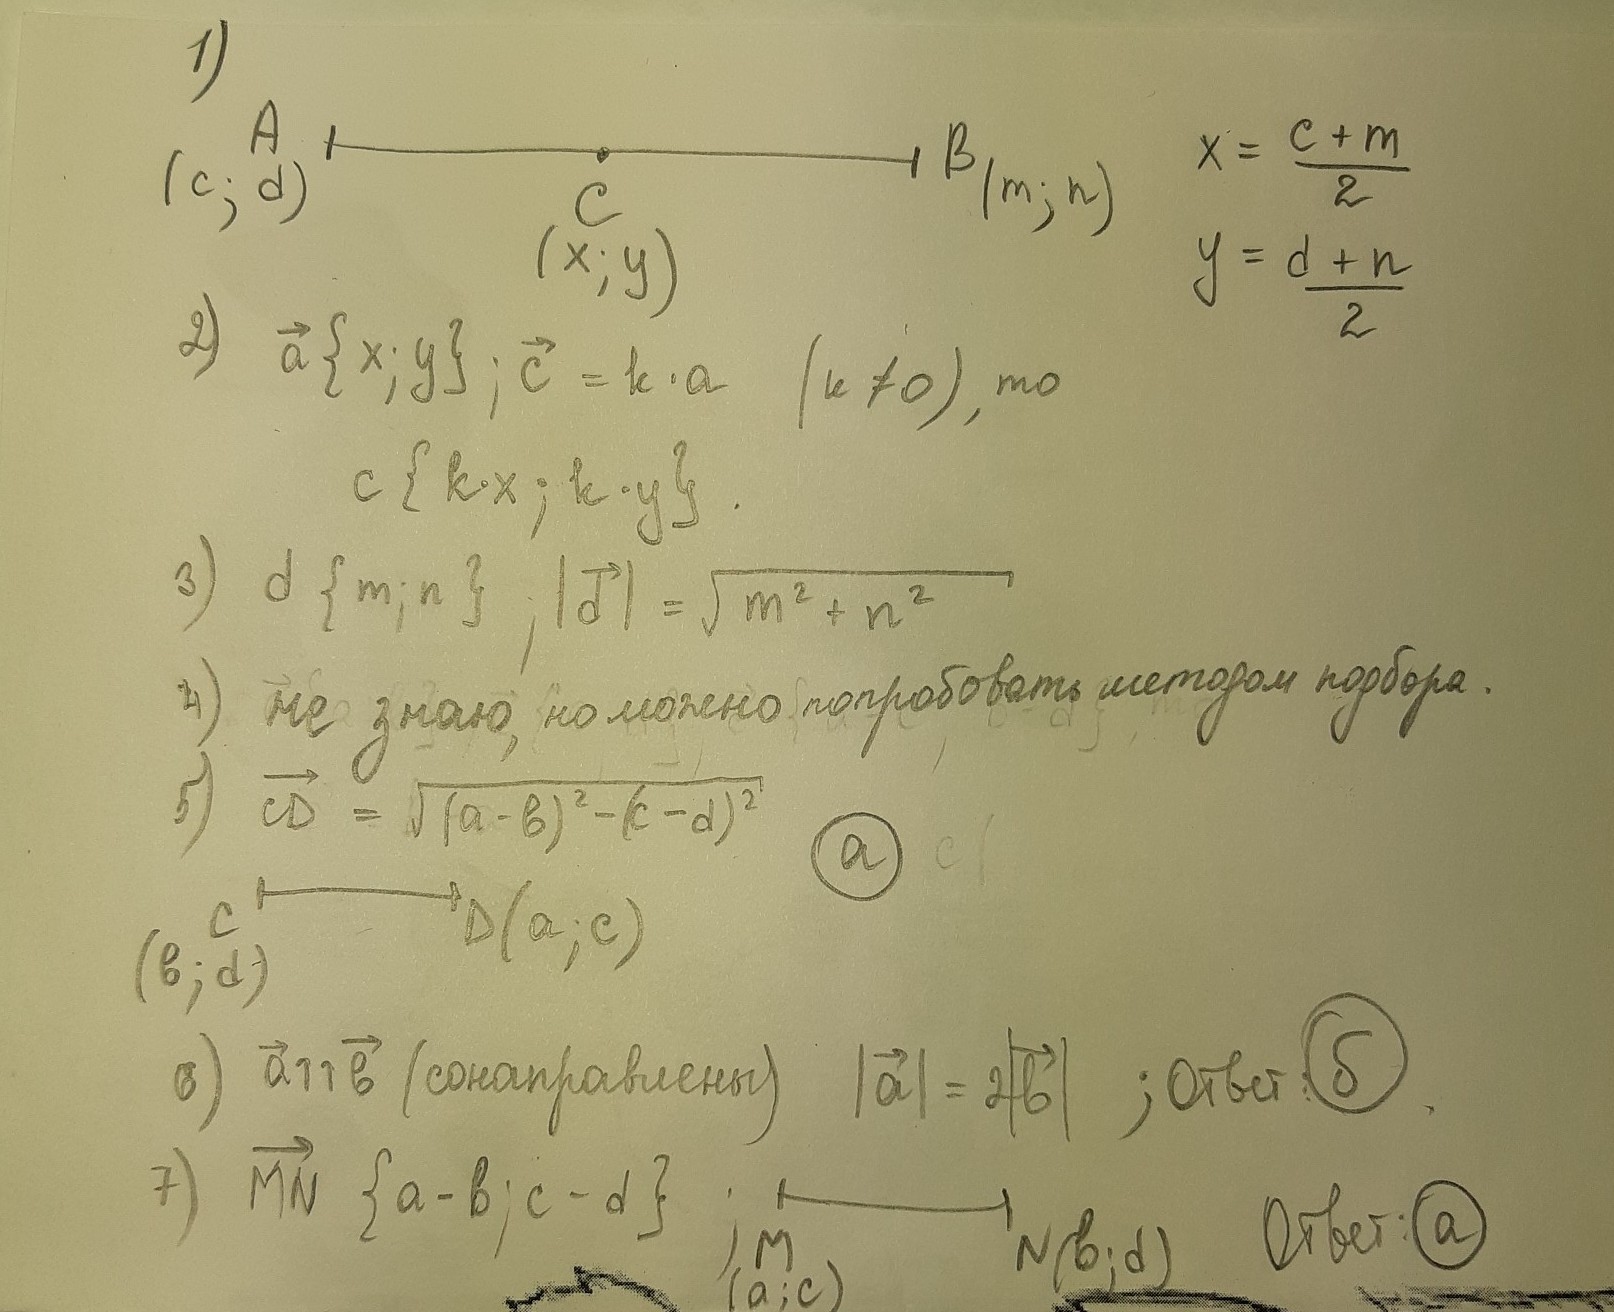 1)
A B x = (c + m)/2
(c; d) C (m; n)
(x; y) y = (d + n)/2
2) a⃗ {x; y}; c⃗ = k·a (k ≠ 0), то
c {k·x; k·y}.
3) d {m; n}; |d⃗| = √(m² + n²)
4) не знаю, но можно попробовать методом подбора.
5) CD⃗ = √((a-в)² - (c-d)²)
а
C D(a; c)
(в; d)
6) a⃗ ↑↑ в⃗ (сонаправлены) |a⃗| = 2|в⃗| ; Ответ: б.
7) MN⃗ {a-в; c-d} ; M N(в; d) Ответ: а
(a; c)